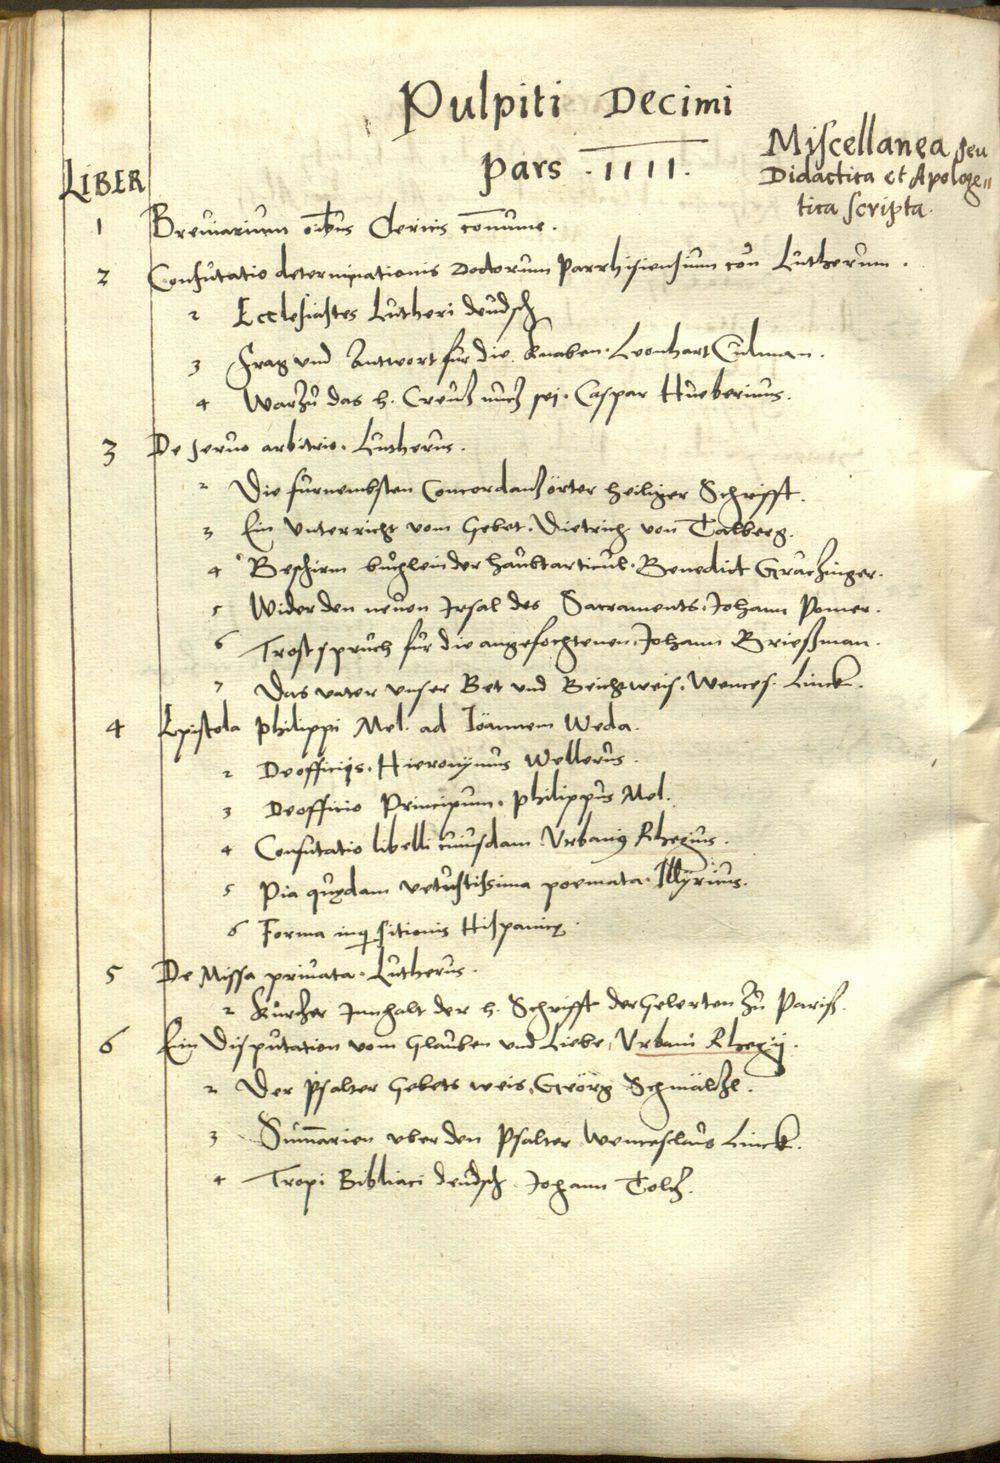 Pulpiti Decimi
Pars .IIII.
Miscellanea seu
Didactica et Apologe=
tica scripta.
LIBER
1 Breuiarium oībus Clericis com̄une.
2 Confutatio determinationis Doctorum Parrhisiensium con Lutherum.
2 Ecclesiastes Lutheri deudsch
3 Frag vnd Antwort fur die Knaben. Leonhart Culman.
4 Warzu das h. Creutz nutz sej. Caspar Hueberinus.
3 De seruo arbitrio. Lutherus.
2 Die furnembsten Concordantz örter heiliger Schrifft.
3 Ein Vnterricht vom Gebet. Dietrich von Talberg.
4 Beschirm buchlein der haubtarticul. Benedict Gretzinger.
5 Wider den neuen Irsal des Sacraments. Johann Pomer.
6 Trost spruch fur die angefochtenen. Johann Brießman.
7 Das vater vnser Bet vnd Beichtweis. Wences. Linck.
4 Epistola Philippi Mel. ad Ioannem Weda.
2 De officijs. Hieronymus Wellerus.
3 De officio Principum. Philippus Mel.
4 Confutatio libelli cuiusdam Vrbanus Rhegius.
5 Pia quędam vetustissima poemata. Illyricus.
6 Forma inqsitionis Hispanicę.
5 De Missa priuata. Lutherus.
2 Kurtzer Innhalt der h. Schrifft der Gelerten zu Pariß.
6 Ein Disputation vom Glauben vnd Liebe, Vrbani Rhegij.
2 Der Psalter Gebets weis, Georg Schmältzl.
3 Sum̄arien vber den Psalter Wenceslaus Linck.
4 Tropi Bibliaci deudsch Johann Toltz.